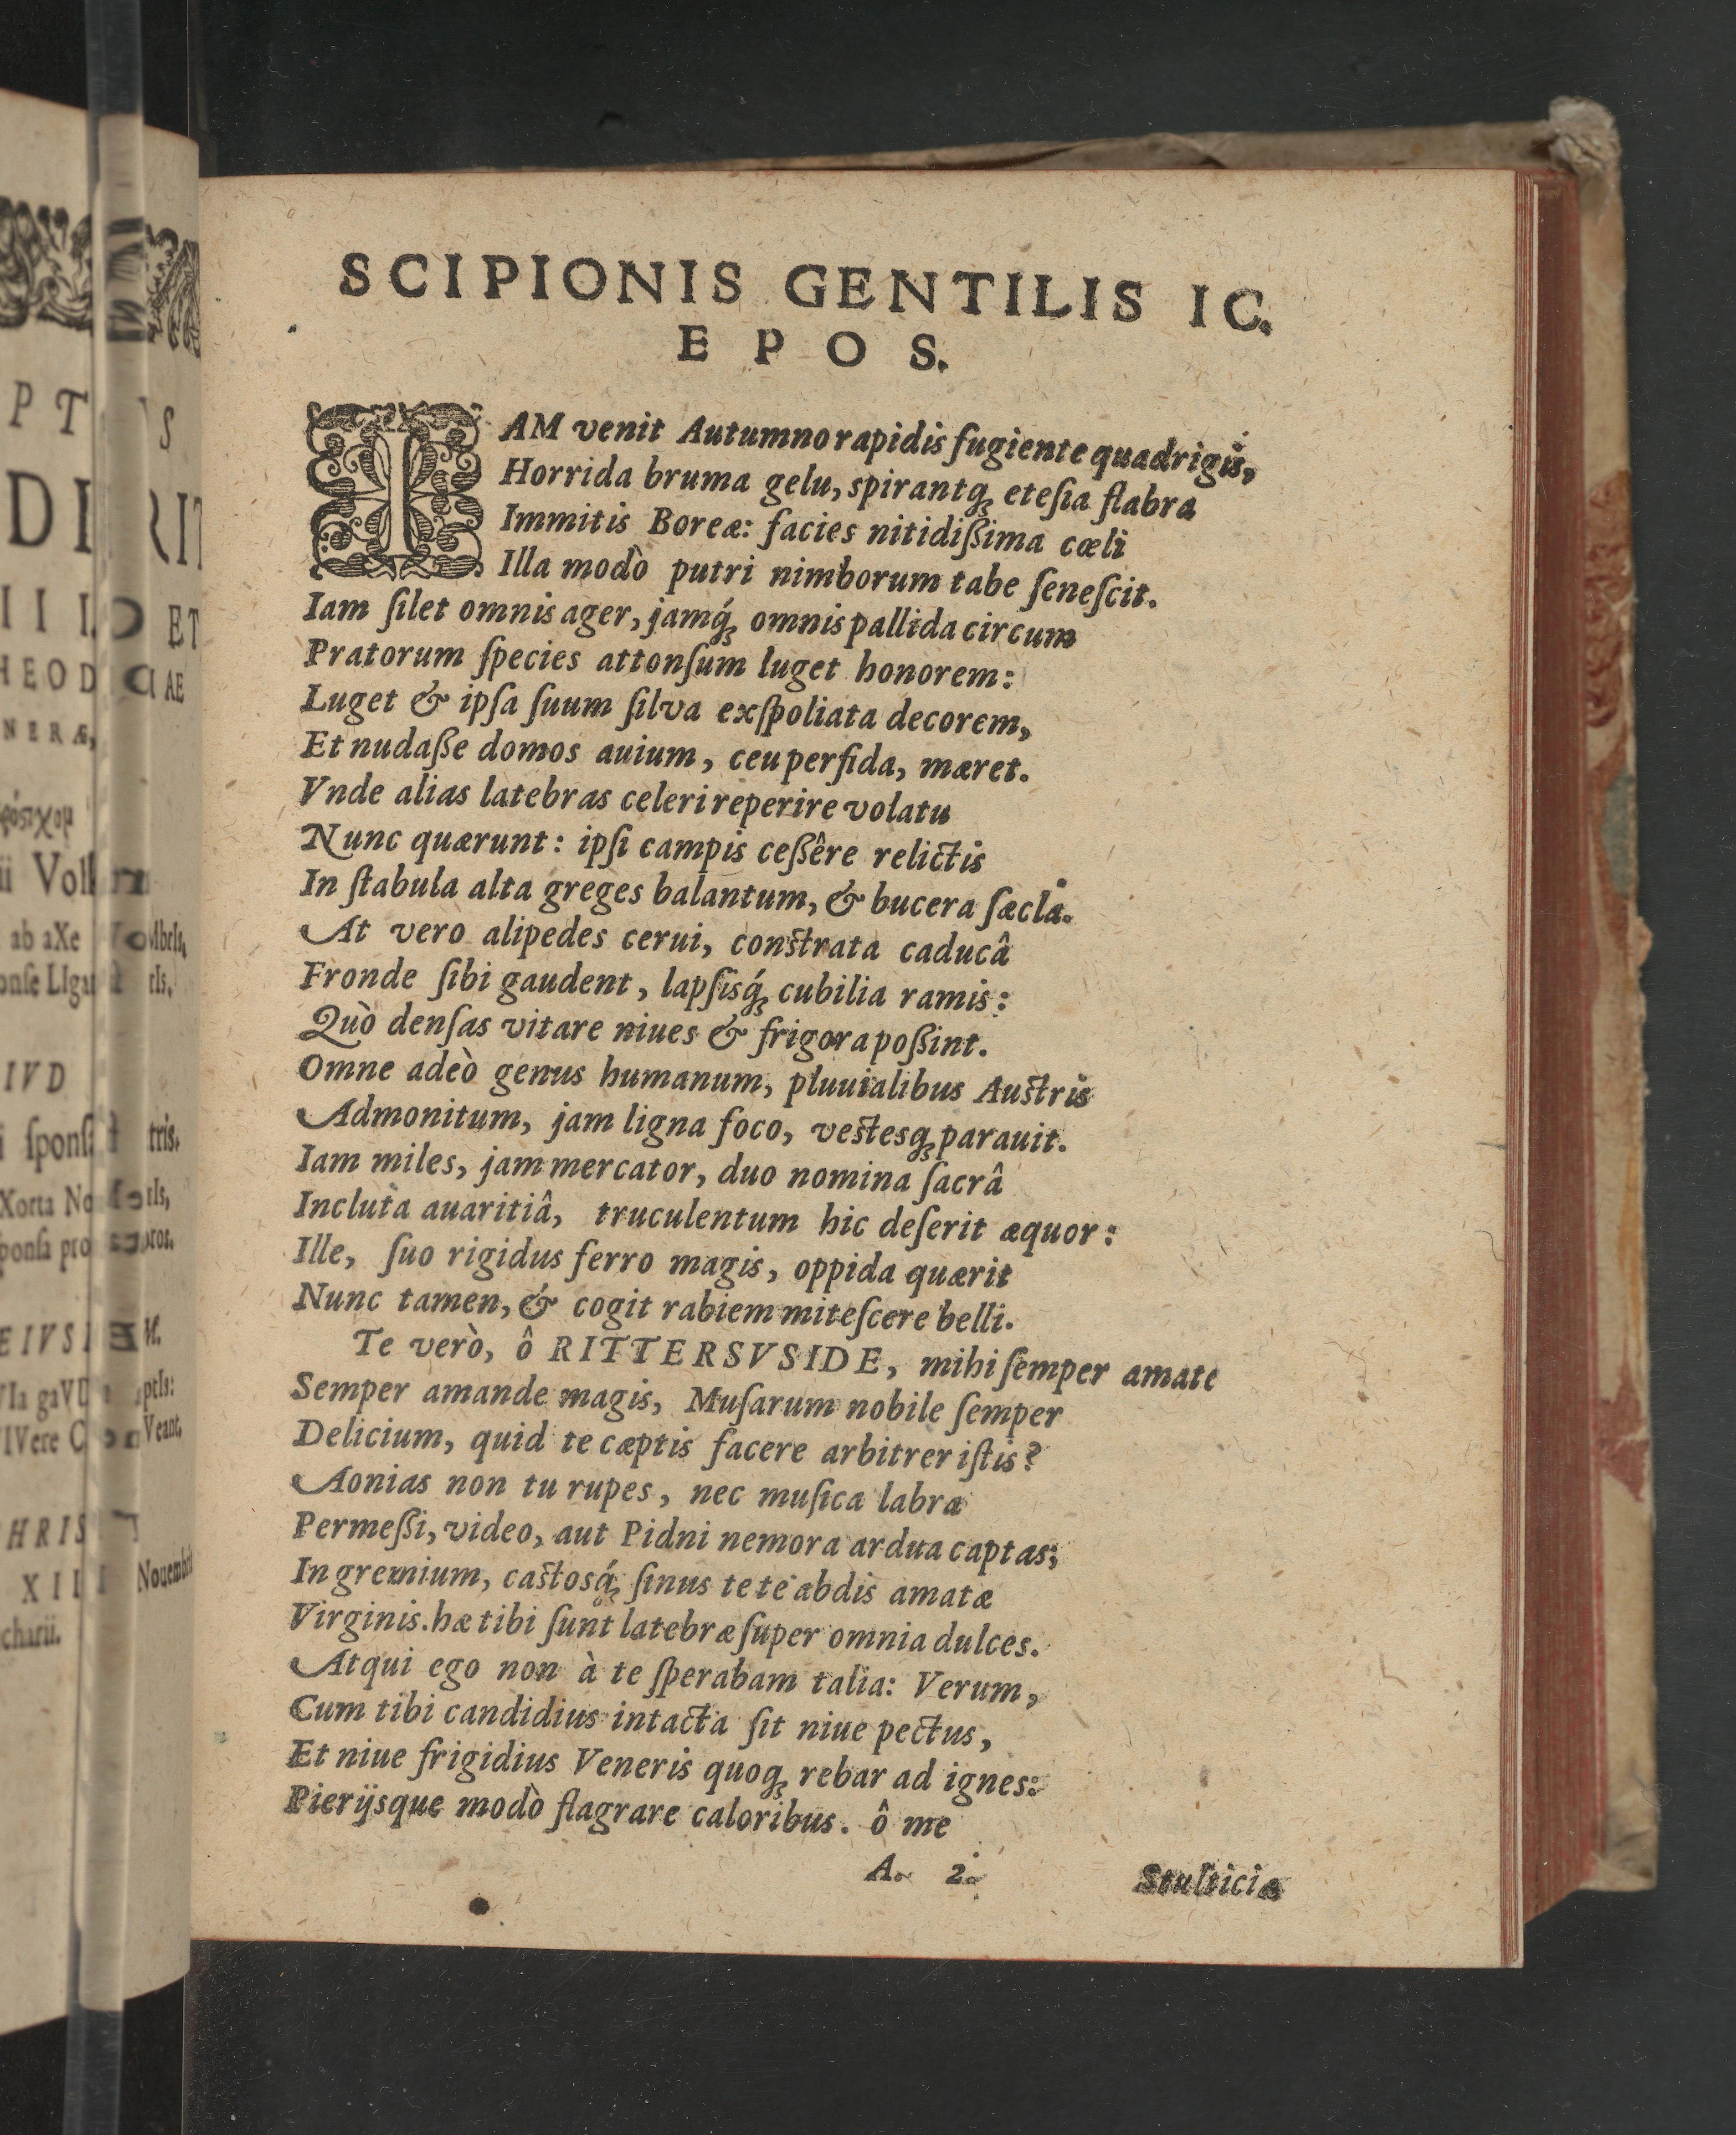 SCIPIONIS GENTILIS IC.
EPOS.
IAM venit Autumno rapidis fugiente quadrigis,
Horrida bruma gelu, spirantq́; eteſia flabra
Immitis Boreæ: facies nitidißima cæli
Illa modò putri nimborum tabe ſeneſcit.
Iam ſilet omnis ager, jamq́; omnis pallida circum
Pratorum ſpecies attonſum luget honorem:
Luget & ipſa ſuum ſilva exſpoliata decorem,
Et nudaße domos auium, ceu perfida, mæret.
Vnde alias latebras celeri reperire volatu
Nunc quærunt: ipſi campis ceßêre relictis
In ſtabula alta greges balantum, & bucera ſæcla.
At vero alipedes cerui, conſtrata caducâ
Fronde ſibi gaudent, lapſisq́; cubilia ramis:
Quò denſas vitare niues & frigora poßint.
Omne adeò genus humanum, pluuialibus Auſtris
Admonitum, jam ligna foco, veſtesq; parauit.
Iam miles, jam mercator, duo nomina ſacrâ
Incluta auaritiâ, truculentum hic deſerit æquor:
Ille, ſuo rigidus ferro magis, oppida quærit
Nunc tamen, & cogit rabiem miteſcere belli.
Te verò, ô RITTERSVSIDE, mihi ſemper amate
Semper amande magis, Muſarum nobile ſemper
Delicium, quid te cæptis facere arbitrer iſtis?
Aonias non tu rupes, nec muſica labra
Permeßi, video, aut Pidni nemora ardua captas;
In gremium, caſtosq́; ſinus tete abdis amatæ
Virginis. hæ tibi ſunt latebræ ſuper omnia dulces.
Atqui ego non à te ſperabam talia: Verum,
Cum tibi candidius intacta ſit niue pectus,
Et niue frigidius Veneris quoq; rebar ad ignes:
Pierijsque modò flagrare caloribus. ô me
A. 2.
Stulticiæ